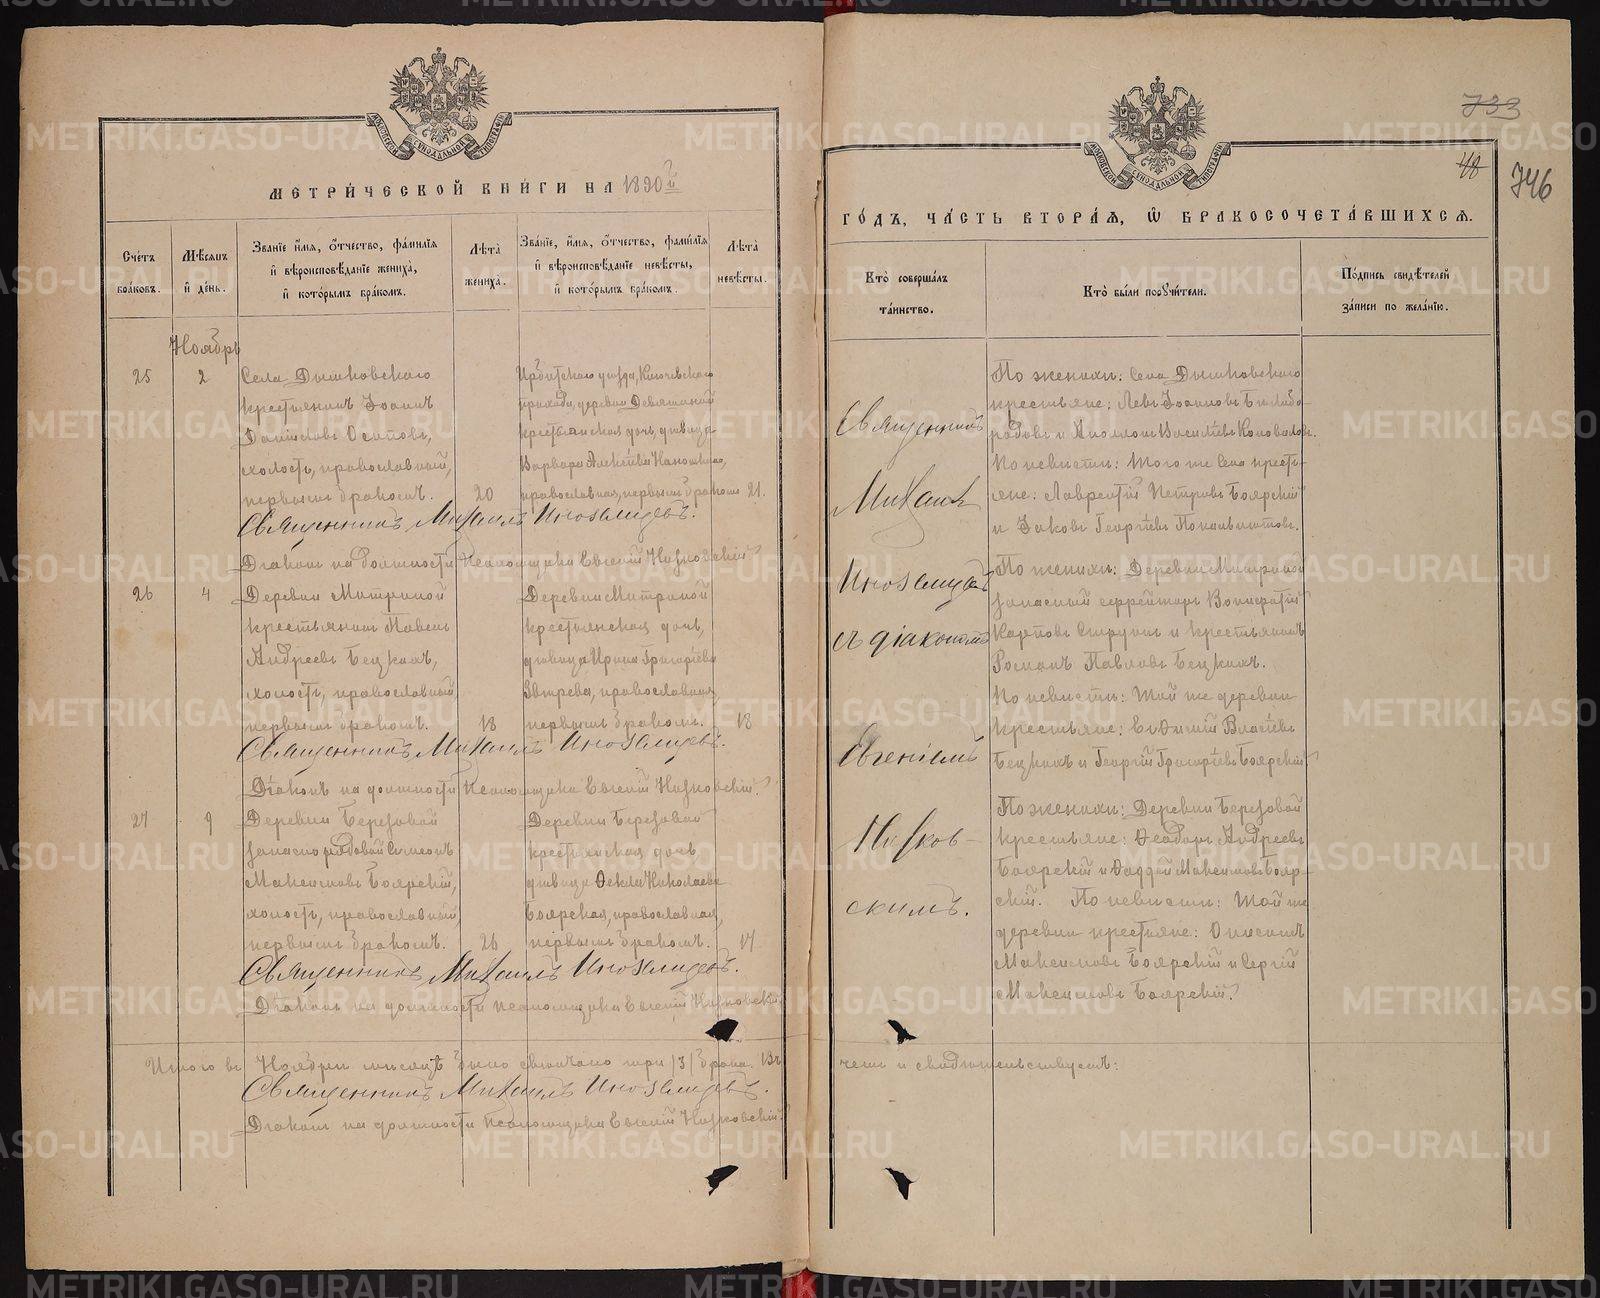 733
48
746
МОСКОВСКОЙ СѴНОДАЛЬНОЙ ТИПОГРАФІИ
МЕТРИЧЕСКОЙ КНИГИ НА 1890й
Счетъ браковъ.
Мѣсяцъ и день.
Званіе имя, отчество, фамилія
и вѣроисповѣданіе жениха,
и которымъ бракомъ.
Лѣта
жениха.
Званіе, имя, отчество, фамилія
и вѣроисповѣданіе невѣсты,
и которымъ бракомъ.
Лѣта
невѣсты.
Ноябрь
25
2
Села
крестьянинъ Іоаннъ
Осиповъ,
холостъ, православный,
первымъ бракомъ.
20
Ирбитскаго уѣзда, Ключевскаго
прихода, деревни
крестьянская дочь, дѣвица
Варвара Алексѣева
православная, первымъ бракомъ
21.
Священникъ Михаилъ Иноземцевъ.
Діаконъ на должности псаломщика Евгеній Низковскій
26
4
Деревни
крестьянинъ Павелъ
Андреевъ Бецкихъ,
холостъ, православный
первымъ бракомъ.
18
Деревни
крестьянская дочь,
дѣвица Ирина Григорьева
православная,
первымъ бракомъ.
18
Священникъ Михаилъ Иноземцевъ.
Діаконъ на должности псаломщика Евгеній Низковскій.
27
9
Деревни Березовой
запасно рядовой Симеонъ
Максимовъ Боярскій,
холостъ, православный,
первымъ бракомъ.
26
Деревни Березовой
крестьянская дочь
дѣвица Ѳекла Николаева
Боярская, православная,
первымъ бракомъ.
17
Священникъ Михаилъ Иноземцевъ.
Діаконъ на должности псаломщика Евгеній Низковскій
Итого въ Ноябрѣ мѣсяцѣ было свѣнчано три /3/ брака. Въ
Священникъ Михаилъ Иноземцевъ.
Діаконъ на должности псаломщика Евгеній Низковскій.
МОСКОВСКОЙ СѴНОДАЛЬНОЙ ТИПОГРАФІИ
ГОДЪ, ЧАСТЬ ВТОРАЯ, Ѡ БРАКОСОЧЕТАВШИХСЯ.
Кто совершалъ
таинство.
Кто были поручители.
Подпись свидѣтелей
записи по желанію.
Священникъ
Михаилъ
Иноземцевъ
съ діакономъ
Евгеніемъ
Низков-
скимъ.
По женихѣ: села
крестьяне: Левъ Іоанновъ Бѣлобо-
родовъ и Аполлонъ Васильевъ Коноваловъ.
По невѣстѣ: того же села кресть-
яне: Лаврентій Петровъ Боярскій
и Іаковъ Георгіевъ
По женихѣ: Деревни
запасный ефрейторъ
Карповъ и крестьянинъ
Романъ Павловъ Бецкихъ.
По невѣстѣ: той же деревни
крестьяне: Евѳимій Власьевъ
Бецкихъ и Георгій Григорьевъ Боярскій
По женихѣ: Деревни Березовой
крестьяне: Ѳеодоръ Андреевъ
Боярскій и Ѳаддей Максимовъ Бояр-
скій. По невѣстѣ: той же
деревни крестьяне: Онисимъ
Максимовъ Боярскій и Сергій
Максимовъ Боярскій.
чемъ и свидѣтельствуемъ:
METRIKI.GASO-URAL.RU